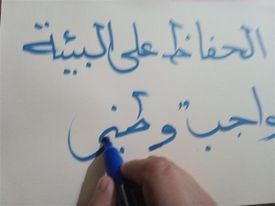 الحفاظ على البيئة
واجب وطني